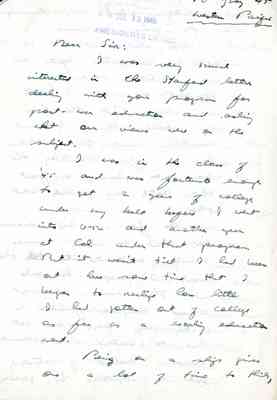 Western Pacific
Dear Sir:
I was very much
interested in the Stanford letter
dealing with your program for
post-war education and asking
what our views were on the
subject.
I was in the class of
'45 and was fortunate enough
to get a years of college
under my belt before I went
into V-12 and another year
at Cal under that program.
But it wasn't till I had been
at sea some time that I
began to realize how little
I had gotten out of college
as far as a education
went.
Being on a ship gives
one a lot of time to think,